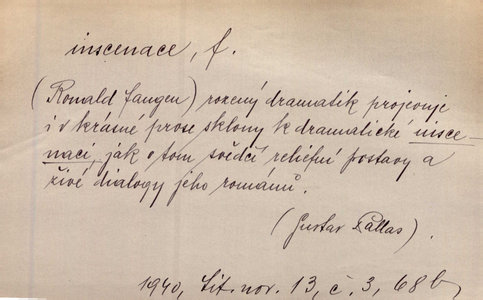 inscenace, f.
(Ronald Fangen) rozený dramatik projevuje
i v krásné prose sklony k dramatické insce-
naci, jak o tom svědčí reliefní postavy a
živé dialogy jeho románů.
(Gustav Pallas).
1940, Lit. nov. 13, č. 3, 68b